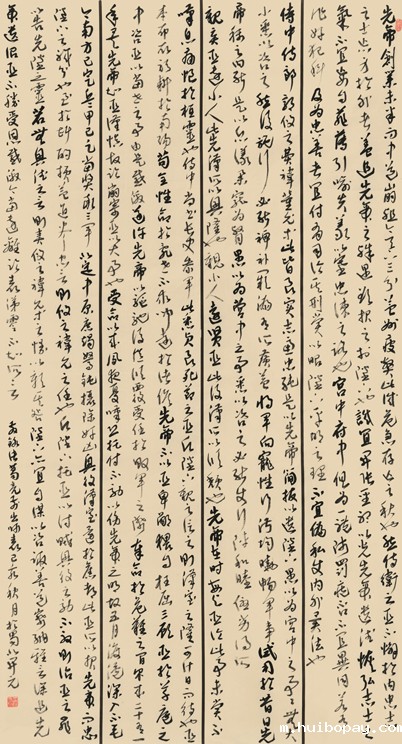 先帝創業未半而中道崩殂今天下三分益州疲弊此誠危急存亡之秋也然侍衛之臣不懈於內忠志
之士忘身於外者蓋追先帝之殊遇欲報之於陛下也誠宜開張聖聽以光先帝遺德恢弘志士之
氣不宜妄自菲薄引喻失義以塞忠諫之路也宮中府中俱為一體陟罰臧否不宜異同若有
作奸犯科及為忠善者宜付有司論其刑賞以昭陛下平明之理不宜偏私使內外異法也
侍中侍郎郭攸之費禕董允等此皆良實志慮忠純是以先帝簡拔以遺陛下愚以為宮中之事事無
小大悉以咨之然後施行必能裨補闕漏有所廣益將軍向寵性行淑均曉暢軍事試用於昔日先
帝稱之曰能是以眾議舉寵為督愚以為營中之事悉以咨之必能使行陣和睦優劣得所
親賢臣遠小人此先漢所以興隆也親小人遠賢臣此後漢所以傾頹也先帝在時每與臣論此事未嘗不
嘆息痛恨於桓靈也侍中尚書長史參軍此悉貞良死節之臣願陛下親之信之則漢室之隆可計日而待也臣
本布衣躬耕於南陽苟全性命於亂世不求聞達於諸侯先帝不以臣卑鄙猥自枉屈三顧臣於草廬之
中咨臣以當世之事由是感激遂許先帝以驅馳後值傾覆受任於敗軍之際奉命於危難之間爾來二十有一
年矣先帝知臣謹慎故臨崩寄臣以大事也受命以來夙夜憂嘆恐託付不效以傷先帝之明故五月渡瀘深入不毛
今南方已定兵甲已足當獎率三軍北定中原庶竭駑鈍攘除奸凶興復漢室還於舊都此臣所以報先帝而忠
陛下之職分也至於斟酌損益進盡忠言則攸之禕允之任也願陛下託臣以討賊興復之效不效則治臣之罪
以告先帝之靈若無興德之言則責攸之禕允等之慢以彰其咎陛下亦宜自謀以咨諏善道察納雅言深追先
帝遺詔臣不勝受恩感激今當遠離臨表涕零不知所言
諸葛亮出師表己亥秋月於蜀北
m.huibopag.com